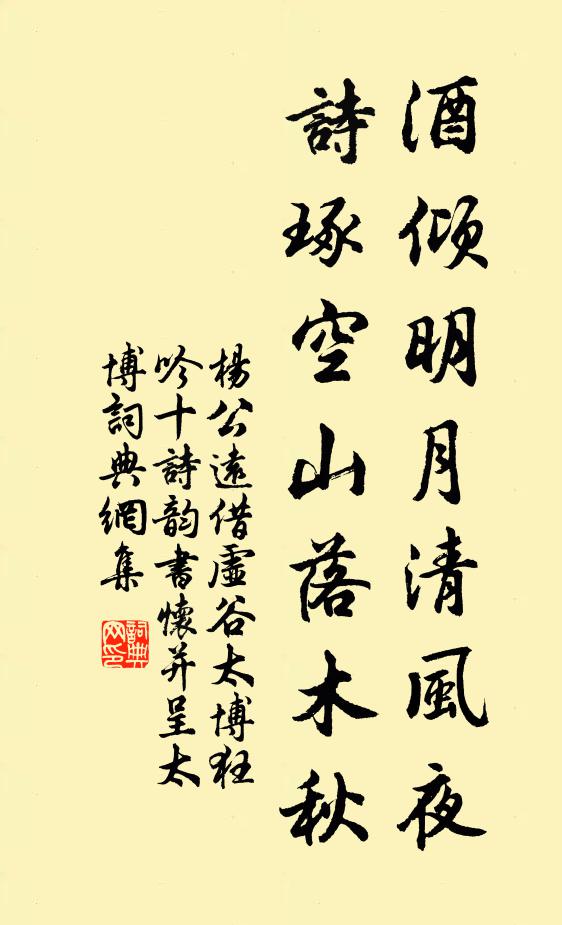 酒傾明月清風夜
詩琢空山落木秋
楊公遠借虛谷太博狂
吟十詩韵書懷并呈太
博詞典網集
詞典
网印